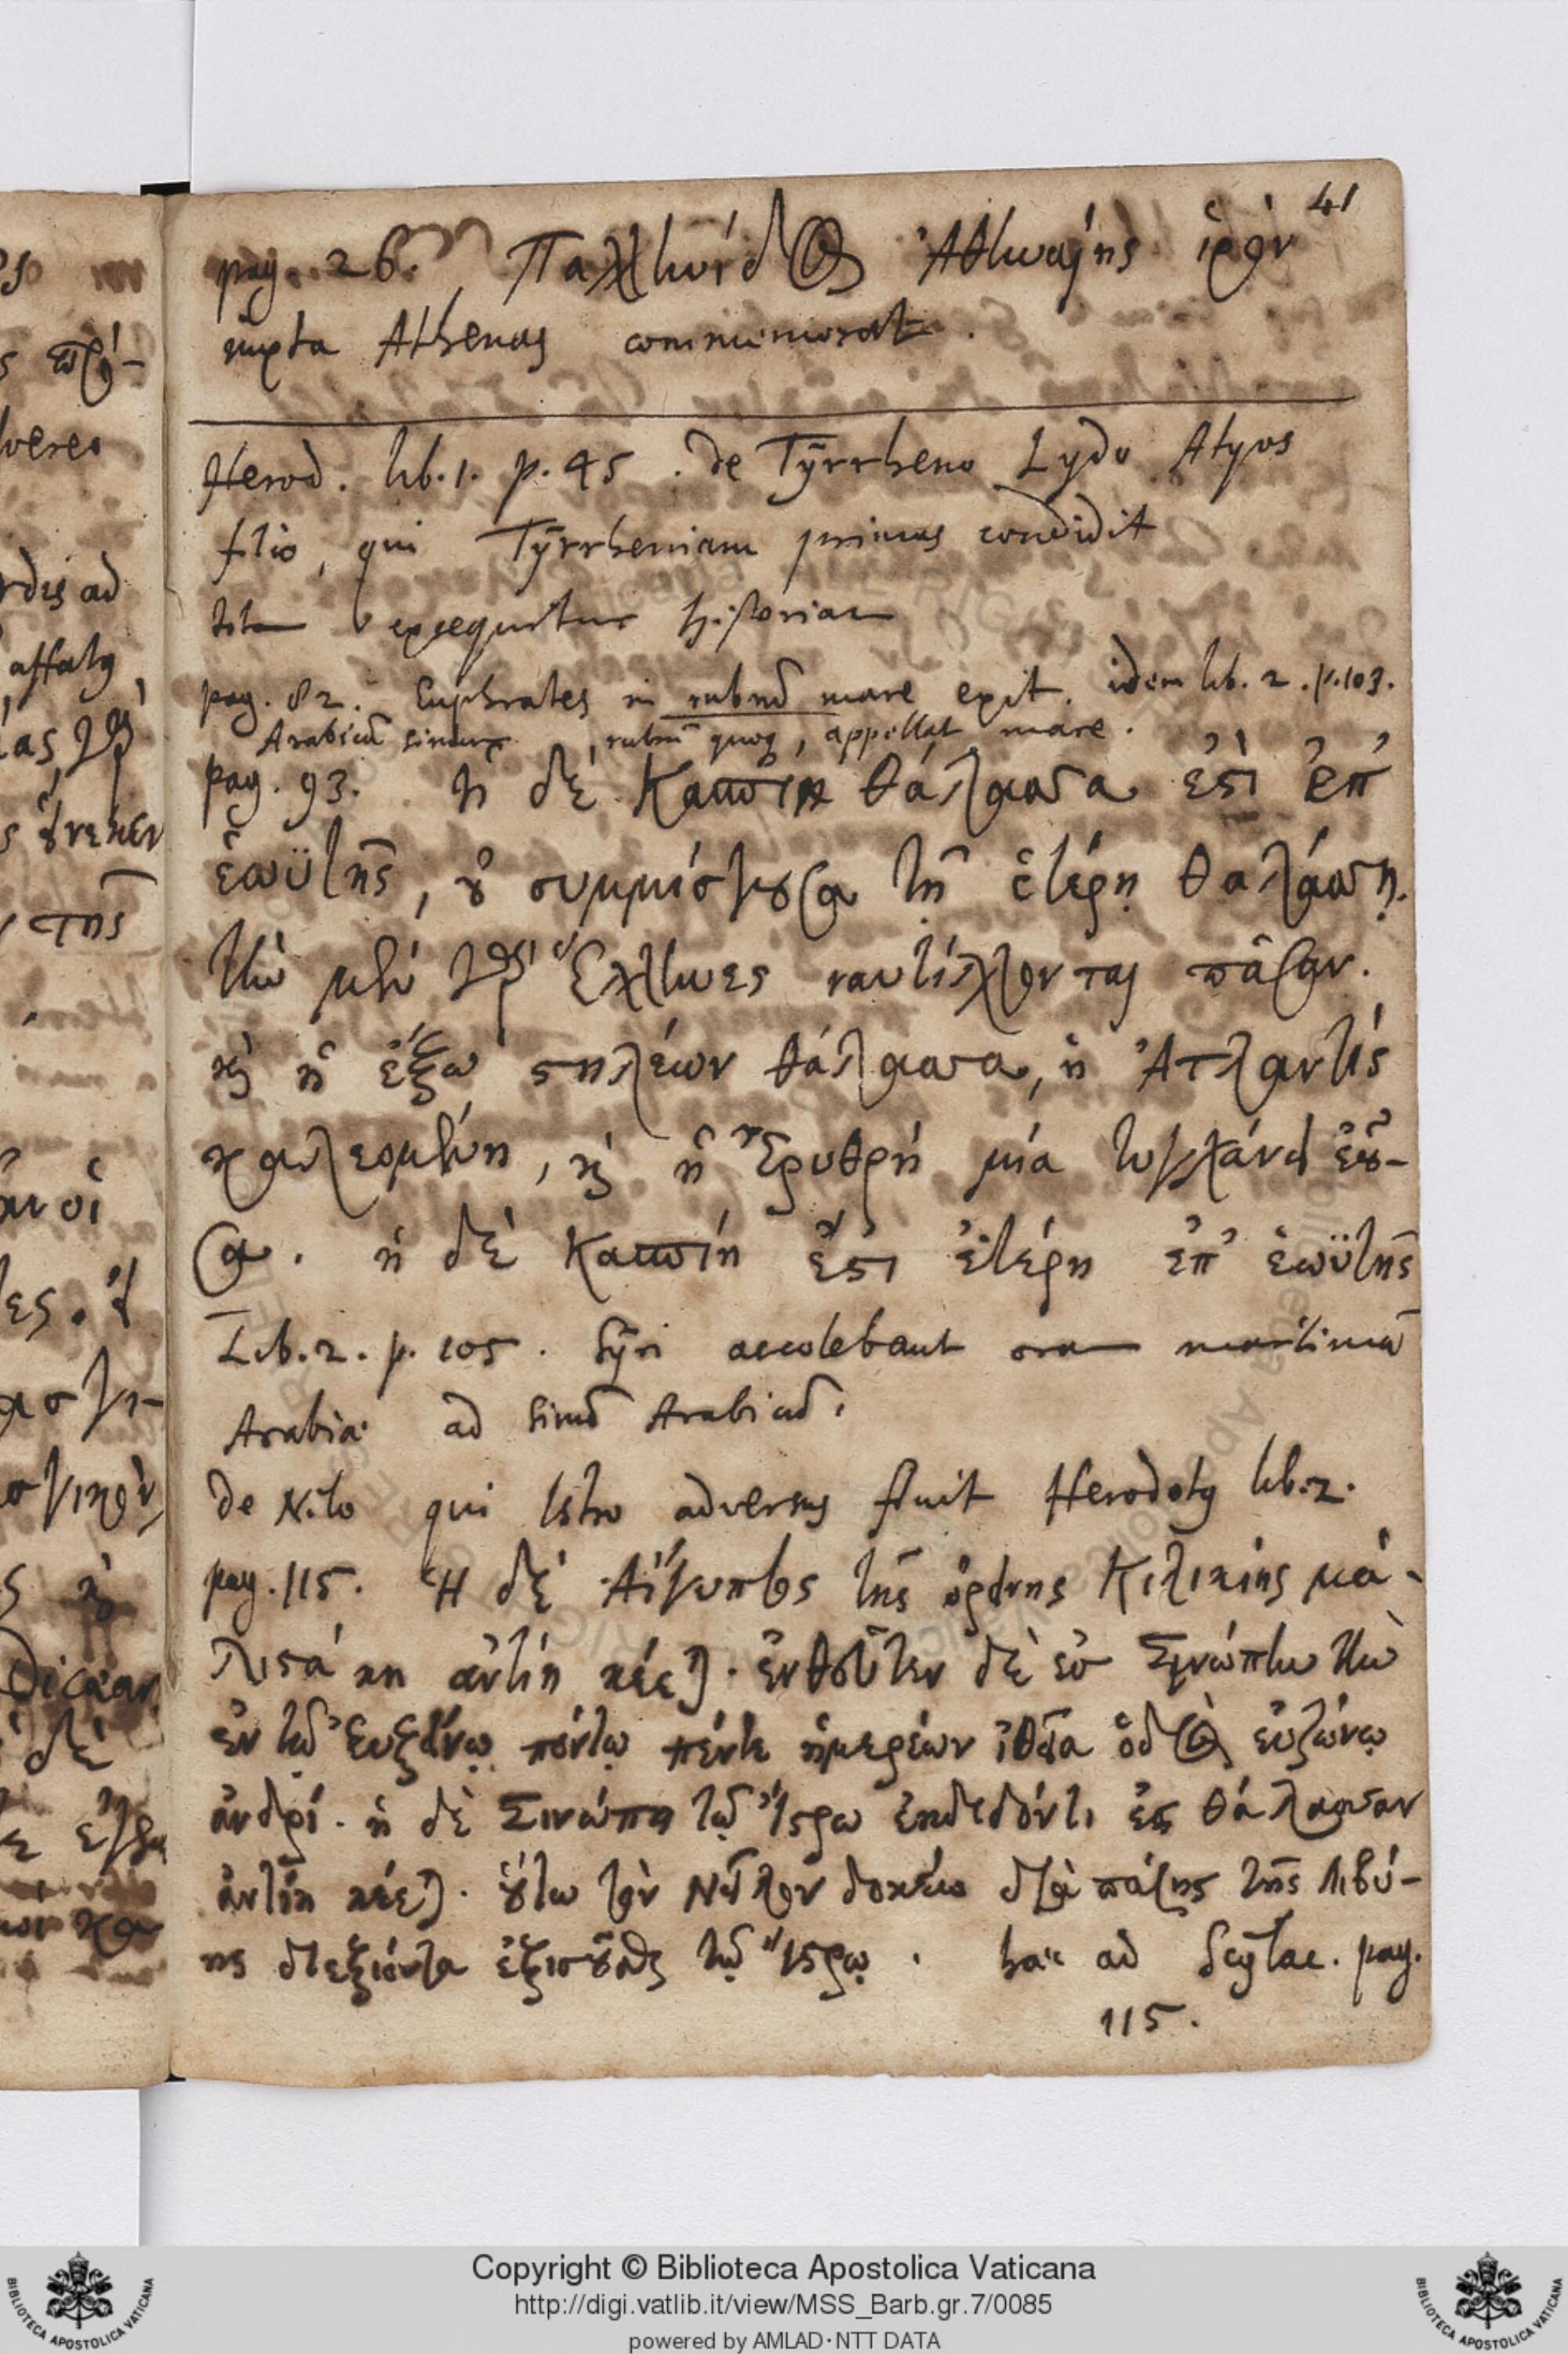 41
pag. 26. Παλλωίδος Ἀθηναίης ἱρὸν
iuxta Athenas commemorat.
Herod. lib. 1. p. 45. de Tyrrheno Lydo Atyos
filio, qui Tyrrheniam primus condidit
exequitur historiam
pag. 82. Euphrates in rubrũ mare exit. idem lib. 2. p. 103.
Arabicũ sinum, rubrũ quoq, appellat mare.
pag. 93. ἡ δὲ Κασπίη θάλασσα ἐστὶ ἐπ'
ἑωϋτῆς, οὐ συμμίσγουσα τῇ ἑτέρῃ θαλάσσῃ.
τὴν μὲν γὰρ Ἕλληνες ναυτίλλονται πᾶσαν.
καὶ ἡ ἔξω στηλέων θάλασσα, ἡ Ἀτλαντὶς
καλεομένη, καὶ ἡ Ἐρυθρή μία τυγχάνει ἐοῦ-
σα. ἡ δὲ Κασπίη ἐστὶ ἑτέρη ἐπ' ἑωϋτῆς
Lib. 2. p. 105. Syri accolebant oram maritimã
Arabiæ ad sinũ Arabicũ.
de Nilo qui Istro adversus fluit Herodotus lib. 2.
pag. 115. Ἡ δὲ Αἴγυπτος τῆς ὀρεινῆς Κιλικίης μά-
λιστά κῃ ἀντίη κέεται. ἐνθεῦτεν δὲ ἐς Σινώπην τὴν
ἐν τῷ Εὐξείνῳ πόντῳ πέντε ἡμερέων ἰθεῖα ὁδὸς εὐζώνῳ
ἀνδρί. ἡ δὲ Σινώπη τῷ Ἴστρῳ ἐκδιδόντι ἐς θάλασσαν
ἀντίη κέεται. οὕτω τὸν Νεῖλον δοκέω διὰ πάσης τῆς Λιβύ-
ης διεξιόντα ἐξισοῦσθαι τῷ Ἴστρῳ. hæc ad Scylac. pag.
115.
Copyright © Biblioteca Apostolica Vaticana
http://digi.vatlib.it/view/MSS_Barb.gr.7/0085
powered by AMLAD·NTT DATA